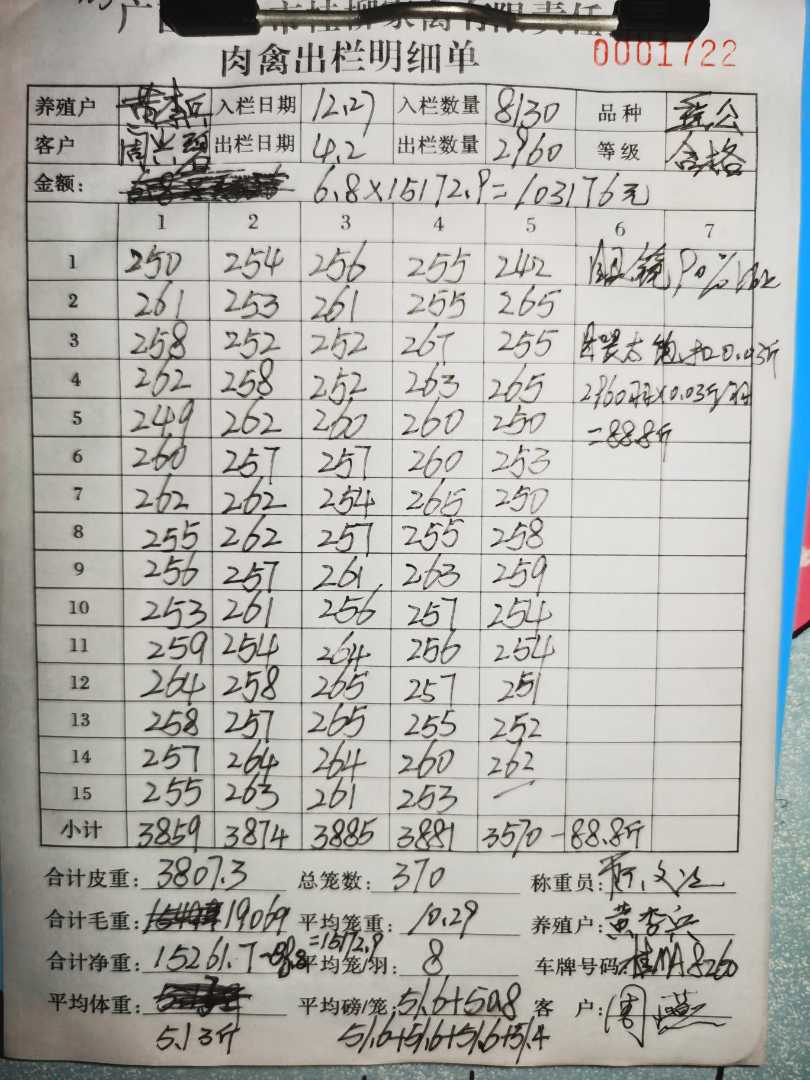 市桂柳家禽有限责任
肉禽出栏明细单 0001722
养殖户 黄李兵 入栏日期 12.27 入栏数量 8130 品种
客户 出栏日期 4.2 出栏数量 2960 等级 合格
金额: 6.8×15172.9=103176元
1 2 3 4 5 6 7
1 250 254 256 255 242 90%
2 261 253 261 255 265
3 258 252 252 267 255 0.03斤
4 262 258 252 263 265 2960羽×0.03斤/羽
5 249 262 260 260 250 =88.8斤
6 260 257 257 260 253
7 262 262 254 265 250
8 255 262 257 255 258
9 256 257 261 263 259
10 253 261 256 257 254
11 259 254 264 256 254
12 264 258 265 257 251
13 258 257 265 255 252
14 257 264 264 260 262
15 255 263 261 253 —
小计 3859 3874 3885 3881 3570 -88.8斤
合计皮重: 3807.3 总笼数: 370 称重员:
合计毛重: 19069 平均笼重: 10.29 养殖户: 黄李兵
合计净重: 15261.7-88.8=15172.9 平均笼/羽: 8 车牌号码: 桂MA8260
平均体重: 平均磅/笼: 51.6+50.8 客 户: 周燕
5.13斤 51.6+51.6+51.6+51.4